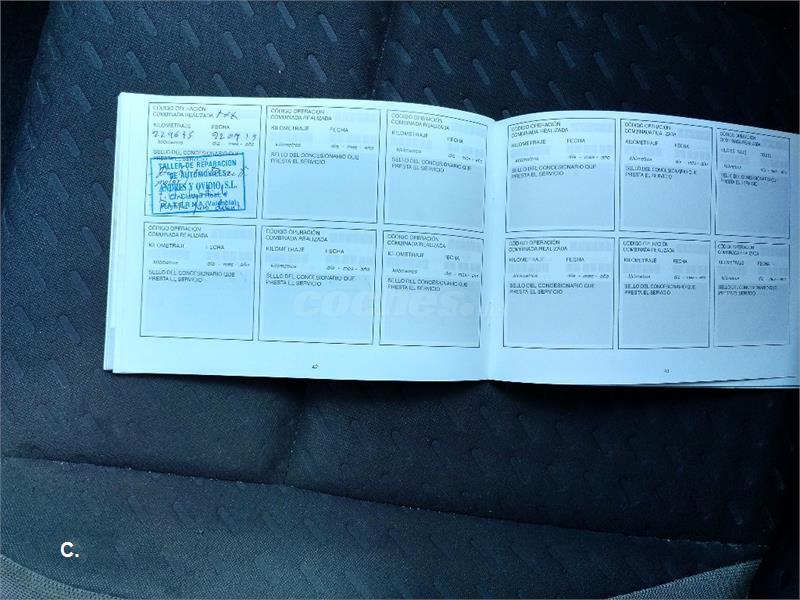 CÓDIGO OPERACIÓN
COMBINADA REALIZADA
KILOMETRAJE FECHA
229635
kilómetros día - mes - año
SELLO DEL CONCESIONARIO QUE
PRESTA EL SERVICIO
TALLER DE REPARACION
DE AUTOMOVILES
ANDRES Y OVIDIO, S.L.
PATERNA (Valencia)
CÓDIGO OPERACIÓN
COMBINADA REALIZADA
KILOMETRAJE FECHA
kilómetros día - mes - año
SELLO DEL CONCESIONARIO QUE
PRESTA EL SERVICIO
CÓDIGO OPERACIÓN
COMBINADA REALIZADA
KILOMETRAJE FECHA
kilómetros día - mes - año
SELLO DEL CONCESIONARIO QUE
PRESTA EL SERVICIO
CÓDIGO OPERACIÓN
COMBINADA REALIZADA
KILOMETRAJE FECHA
kilómetros día - mes - año
SELLO DEL CONCESIONARIO QUE
PRESTA EL SERVICIO
CÓDIGO OPERACIÓN
COMBINADA REALIZADA
KILOMETRAJE FECHA
kilómetros día - mes - año
SELLO DEL CONCESIONARIO QUE
PRESTA EL SERVICIO
CÓDIGO OPERACIÓN
COMBINADA REALIZADA
KILOMETRAJE FECHA
kilómetros día - mes - año
SELLO DEL CONCESIONARIO QUE
PRESTA EL SERVICIO
42
CÓDIGO OPERACIÓN
COMBINADA REALIZADA
KILOMETRAJE FECHA
kilómetros día - mes - año
SELLO DEL CONCESIONARIO QUE
PRESTA EL SERVICIO
CÓDIGO OPERACIÓN
COMBINADA REALIZADA
KILOMETRAJE FECHA
kilómetros día - mes - año
SELLO DEL CONCESIONARIO QUE
PRESTA EL SERVICIO
CÓDIGO OPERACIÓN
COMBINADA REALIZADA
KILOMETRAJE FECHA
kilómetros día - mes - año
SELLO DEL CONCESIONARIO QUE
PRESTA EL SERVICIO
CÓDIGO OPERACIÓN
COMBINADA REALIZADA
KILOMETRAJE FECHA
kilómetros día - mes - año
SELLO DEL CONCESIONARIO QUE
PRESTA EL SERVICIO
CÓDIGO OPERACIÓN
COMBINADA REALIZADA
KILOMETRAJE FECHA
kilómetros día - mes - año
SELLO DEL CONCESIONARIO QUE
PRESTA EL SERVICIO
CÓDIGO OPERACIÓN
COMBINADA REALIZADA
KILOMETRAJE FECHA
kilómetros día - mes - año
SELLO DEL CONCESIONARIO QUE
PRESTA EL SERVICIO
43
coches.net
C.